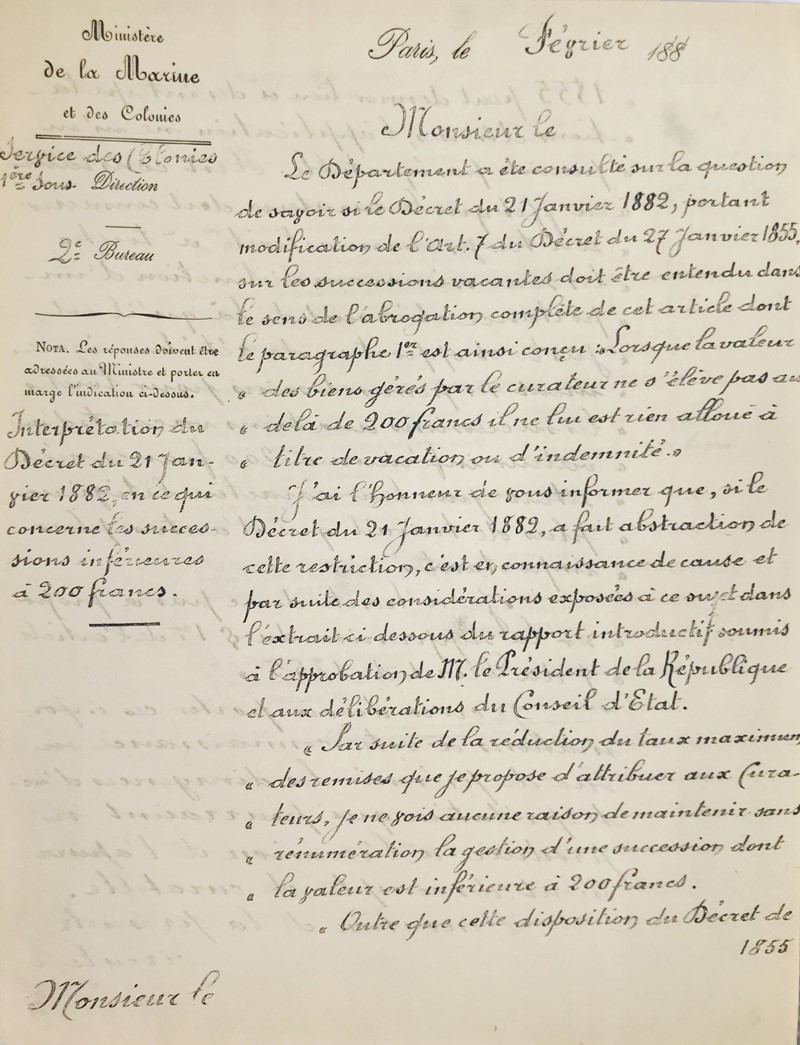 Ministère
de la Marine
et des Colonies
Service des Colonies
1ère Sous-Direction
2e Bureau
NOTA. Les réponses doivent être
adressées au Ministre et porter en
marge l'indication ci-dessus.
Interprétation du
Décret du 21 Jan-
vier 1882, en ce qui
concerne les succes-
sions inférieures
à 200 francs.
Paris, le Février 188
Monsieur le
Le Département a été consulté sur la question
de savoir si le Décret du 21 Janvier 1882, portant
modification de l'Art. 7 du Décret du 27 Janvier 1855,
sur les successions vacantes doit être entendu dans
le sens de l'abrogation complète de cet article dont
le paragraphe 1er est ainsi conçu : « Lorsque la valeur
« des biens gérés par le curateur ne s'élève pas au
« delà de 200 francs il ne lui est rien alloué à
« titre de vacation ou d'indemnité. »
J'ai l'honneur de vous informer que, si le
Décret du 21 Janvier 1882, a fait abstraction de
cette restriction, c'est en connaissance de cause et
par suite des considérations exposées à ce sujet dans
l'extrait ci-dessous du rapport introductif soumis
à l'approbation de M. le Président de la République
et aux délibérations du Conseil d'Etat.
« Par suite de la réduction du taux maximum
« des remises que je propose d'attribuer aux Cura-
« teurs, je ne vois aucune raison de maintenir sans
« rénumération la gestion d'une succession dont
« la valeur est inférieure à 200 francs.
« Outre que cette disposition du Décret de
1855
Monsieur le